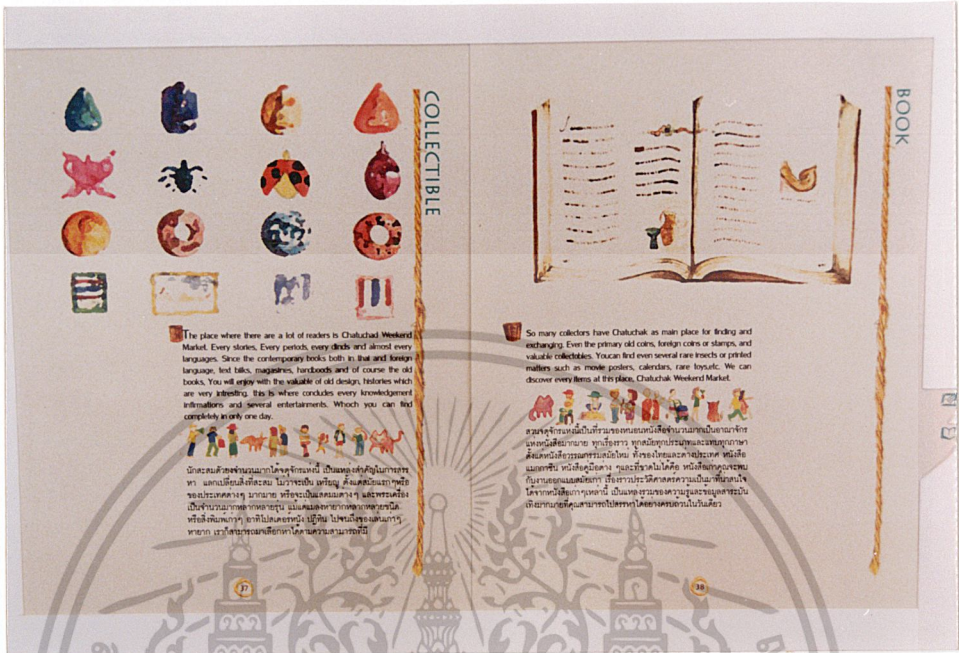 COLLECTIBLE
The place where there are a lot of readers is Chatuchad Weekend
Market. Every stories, Every periods, every dinds and almost every
languages. Since the contemporary books both in thai and foreign
language, text bilks, magasines, hardboods and of course the old
books, You will enjoy with the valuable of old design, histories which
are very intresting. this is where concludes every knowledgement
infirmations and several entertainments. Whoch you can find
completely in only one day.
นักสะสมตัวยงจำนวนมากใช้จตุจักรแห่งนี้ เป็นแหล่งสำคัญในการสรร
หา แลกเปลี่ยนสิ่งที่สะสม ไม่ว่าจะเป็น เหรียญ ตั้งแต่สมัยแรกๆหรือ
ของประเทศต่างๆ มากมาย หรือจะเป็นแสตมป์ต่างๆ และพระเครื่อง
เป็นจำนวนมากหลากหลายรุ่น แม้แต่แมลงหายากหลากหลายชนิด
หรือสิ่งพิมพ์เก่าๆ อาทิโปสเตอร์หนัง ปฏิทิน ไปจนถึงของเล่นเก่าๆ
หายาก เราก็สามารถมาเลือกหาได้ตามความสามารถที่มี
37
BOOK
So many collectors have Chatuchak as main place for finding and
exchanging. Even the primary old coins, foreign coins or stamps, and
valuable collectobles. Youcan find even several rare insects or printed
matters such as movie posters, calendars, rare toys.etc. We can
discover every items at this place, Chatuchak Weekend Market.
สวนจตุจักรแห่งนี้เป็นที่รวมของหนอนหนังสือจำนวนมากเป็นอาณาจักร
แห่งหนังสือมากมาย ทุกเรื่องราว ทุกสมัยทุกประเภทและแทบทุกภาษา
ตั้งแต่หนังสือวรรณกรรมสมัยใหม่ ทั้งของไทยและต่างประเทศ หนังสือ
แมกกาซีน หนังสือคู่มือต่าง ๆและที่ขาดไม่ได้คือ หนังสือเก่าคุณจะพบ
กับงานออกแบบสมัยเก่า เรื่องราวประวัติศาสตร์ความเป็นมาที่น่าสนใจ
ได้จากหนังสือเก่าๆเหล่านี้ เป็นแหล่งรวมของความรู้และข้อมูลสาระบัน
เทิงมากมายที่คุณสามารถไปสรรหาได้อย่างครบถ้วนในวันเดียว
38